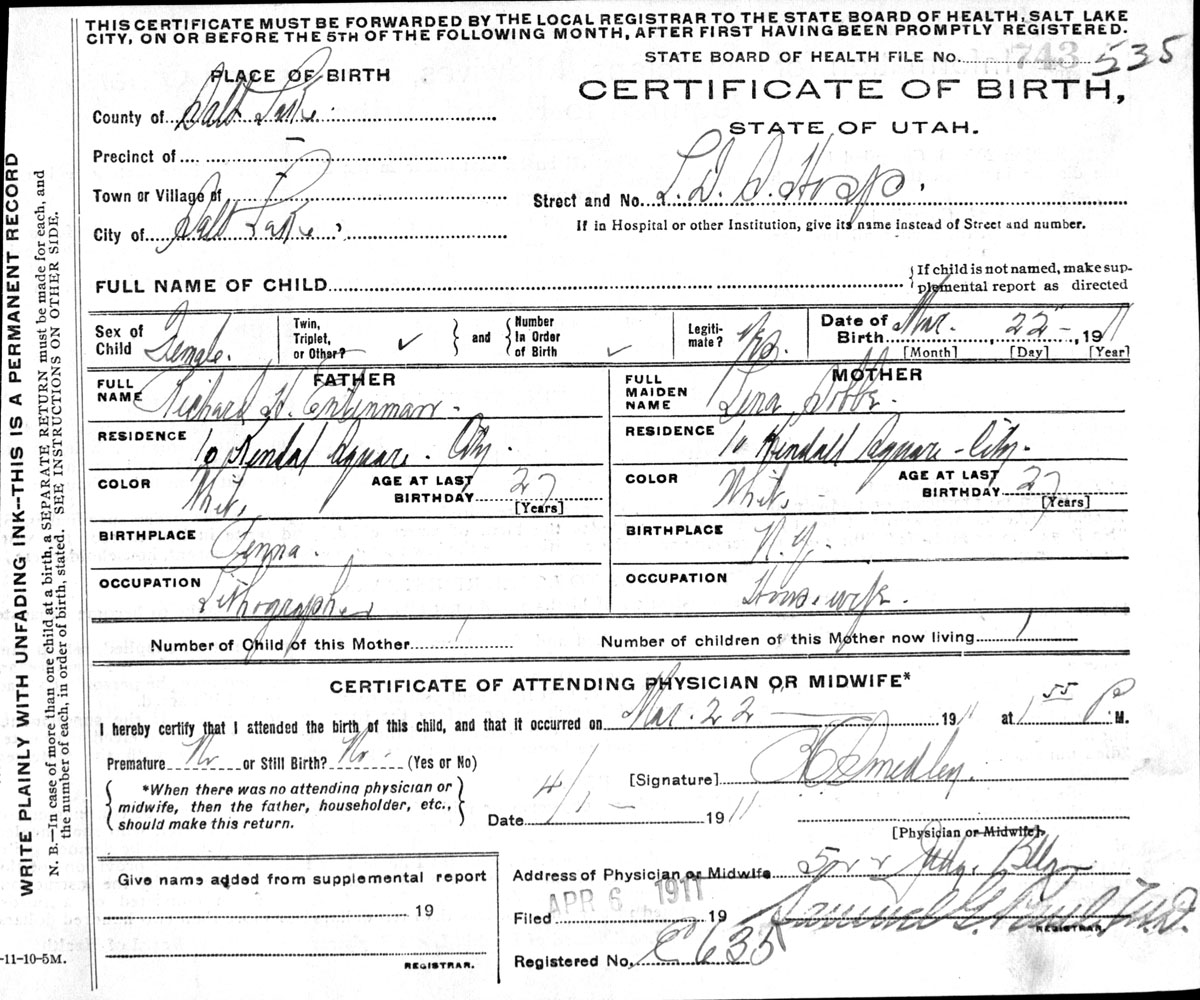 THIS CERTIFICATE MUST BE FORWARDED BY THE LOCAL REGISTRAR TO THE STATE BOARD OF HEALTH, SALT LAKE
CITY, ON OR BEFORE THE 5TH OF THE FOLLOWING MONTH, AFTER FIRST HAVING BEEN PROMPTLY REGISTERED.
STATE BOARD OF HEALTH FILE No. 743 535
PLACE OF BIRTH
CERTIFICATE OF BIRTH,
STATE OF UTAH.
County of Salt Lake
Precinct of
Town or Village of
Street and No. L. D. S. Hosp.
City of Salt Lake
If in Hospital or other Institution, give its name instead of Street and number.
FULL NAME OF CHILD
{ If child is not named, make sup-
plemental report as directed
Sex of Child Female.
Twin, Triplet, or Other? ✓
and
Number In Order of Birth ✓
Legiti- mate? Yes.
Date of Birth Mar. 22 - , 1911
[Month] [Day] [Year]
FATHER
MOTHER
FULL NAME Richard H.
FULL MAIDEN NAME Lena
RESIDENCE 10 Kendal Square. City.
RESIDENCE 10 Kendall Square - City.
COLOR White
AGE AT LAST BIRTHDAY 27 [Years]
COLOR White
AGE AT LAST BIRTHDAY 27 [Years]
BIRTHPLACE Penna.
BIRTHPLACE N. Y.
OCCUPATION Lithographer
OCCUPATION Housewife.
Number of Child of this Mother 1
Number of children of this Mother now living 1
CERTIFICATE OF ATTENDING PHYSICIAN OR MIDWIFE*
I hereby certify that I attended the birth of this child, and that it occurred on Mar. 22 1911 at 1 55 P M.
Premature No or Still Birth? No - (Yes or No)
[Signature] Smedley.
*When there was no attending physician or
midwife, then the father, householder, etc.,
should make this return.
Date 4/1 - 1911
[Physician or Midwife].
Give name added from supplemental report
Address of Physician or Midwife Bldg
19
Filed APR 6 1911 19
REGISTRAR.
REGISTRAR.
Registered No. C 635
-11-10-5M.
WRITE PLAINLY WITH UNFADING INK--THIS IS A PERMANENT RECORD
N. B.—In case of more than one child at a birth, a SEPARATE RETURN must be made for each, and
the number of each, in order of birth, stated. SEE INSTRUCTIONS ON OTHER SIDE.